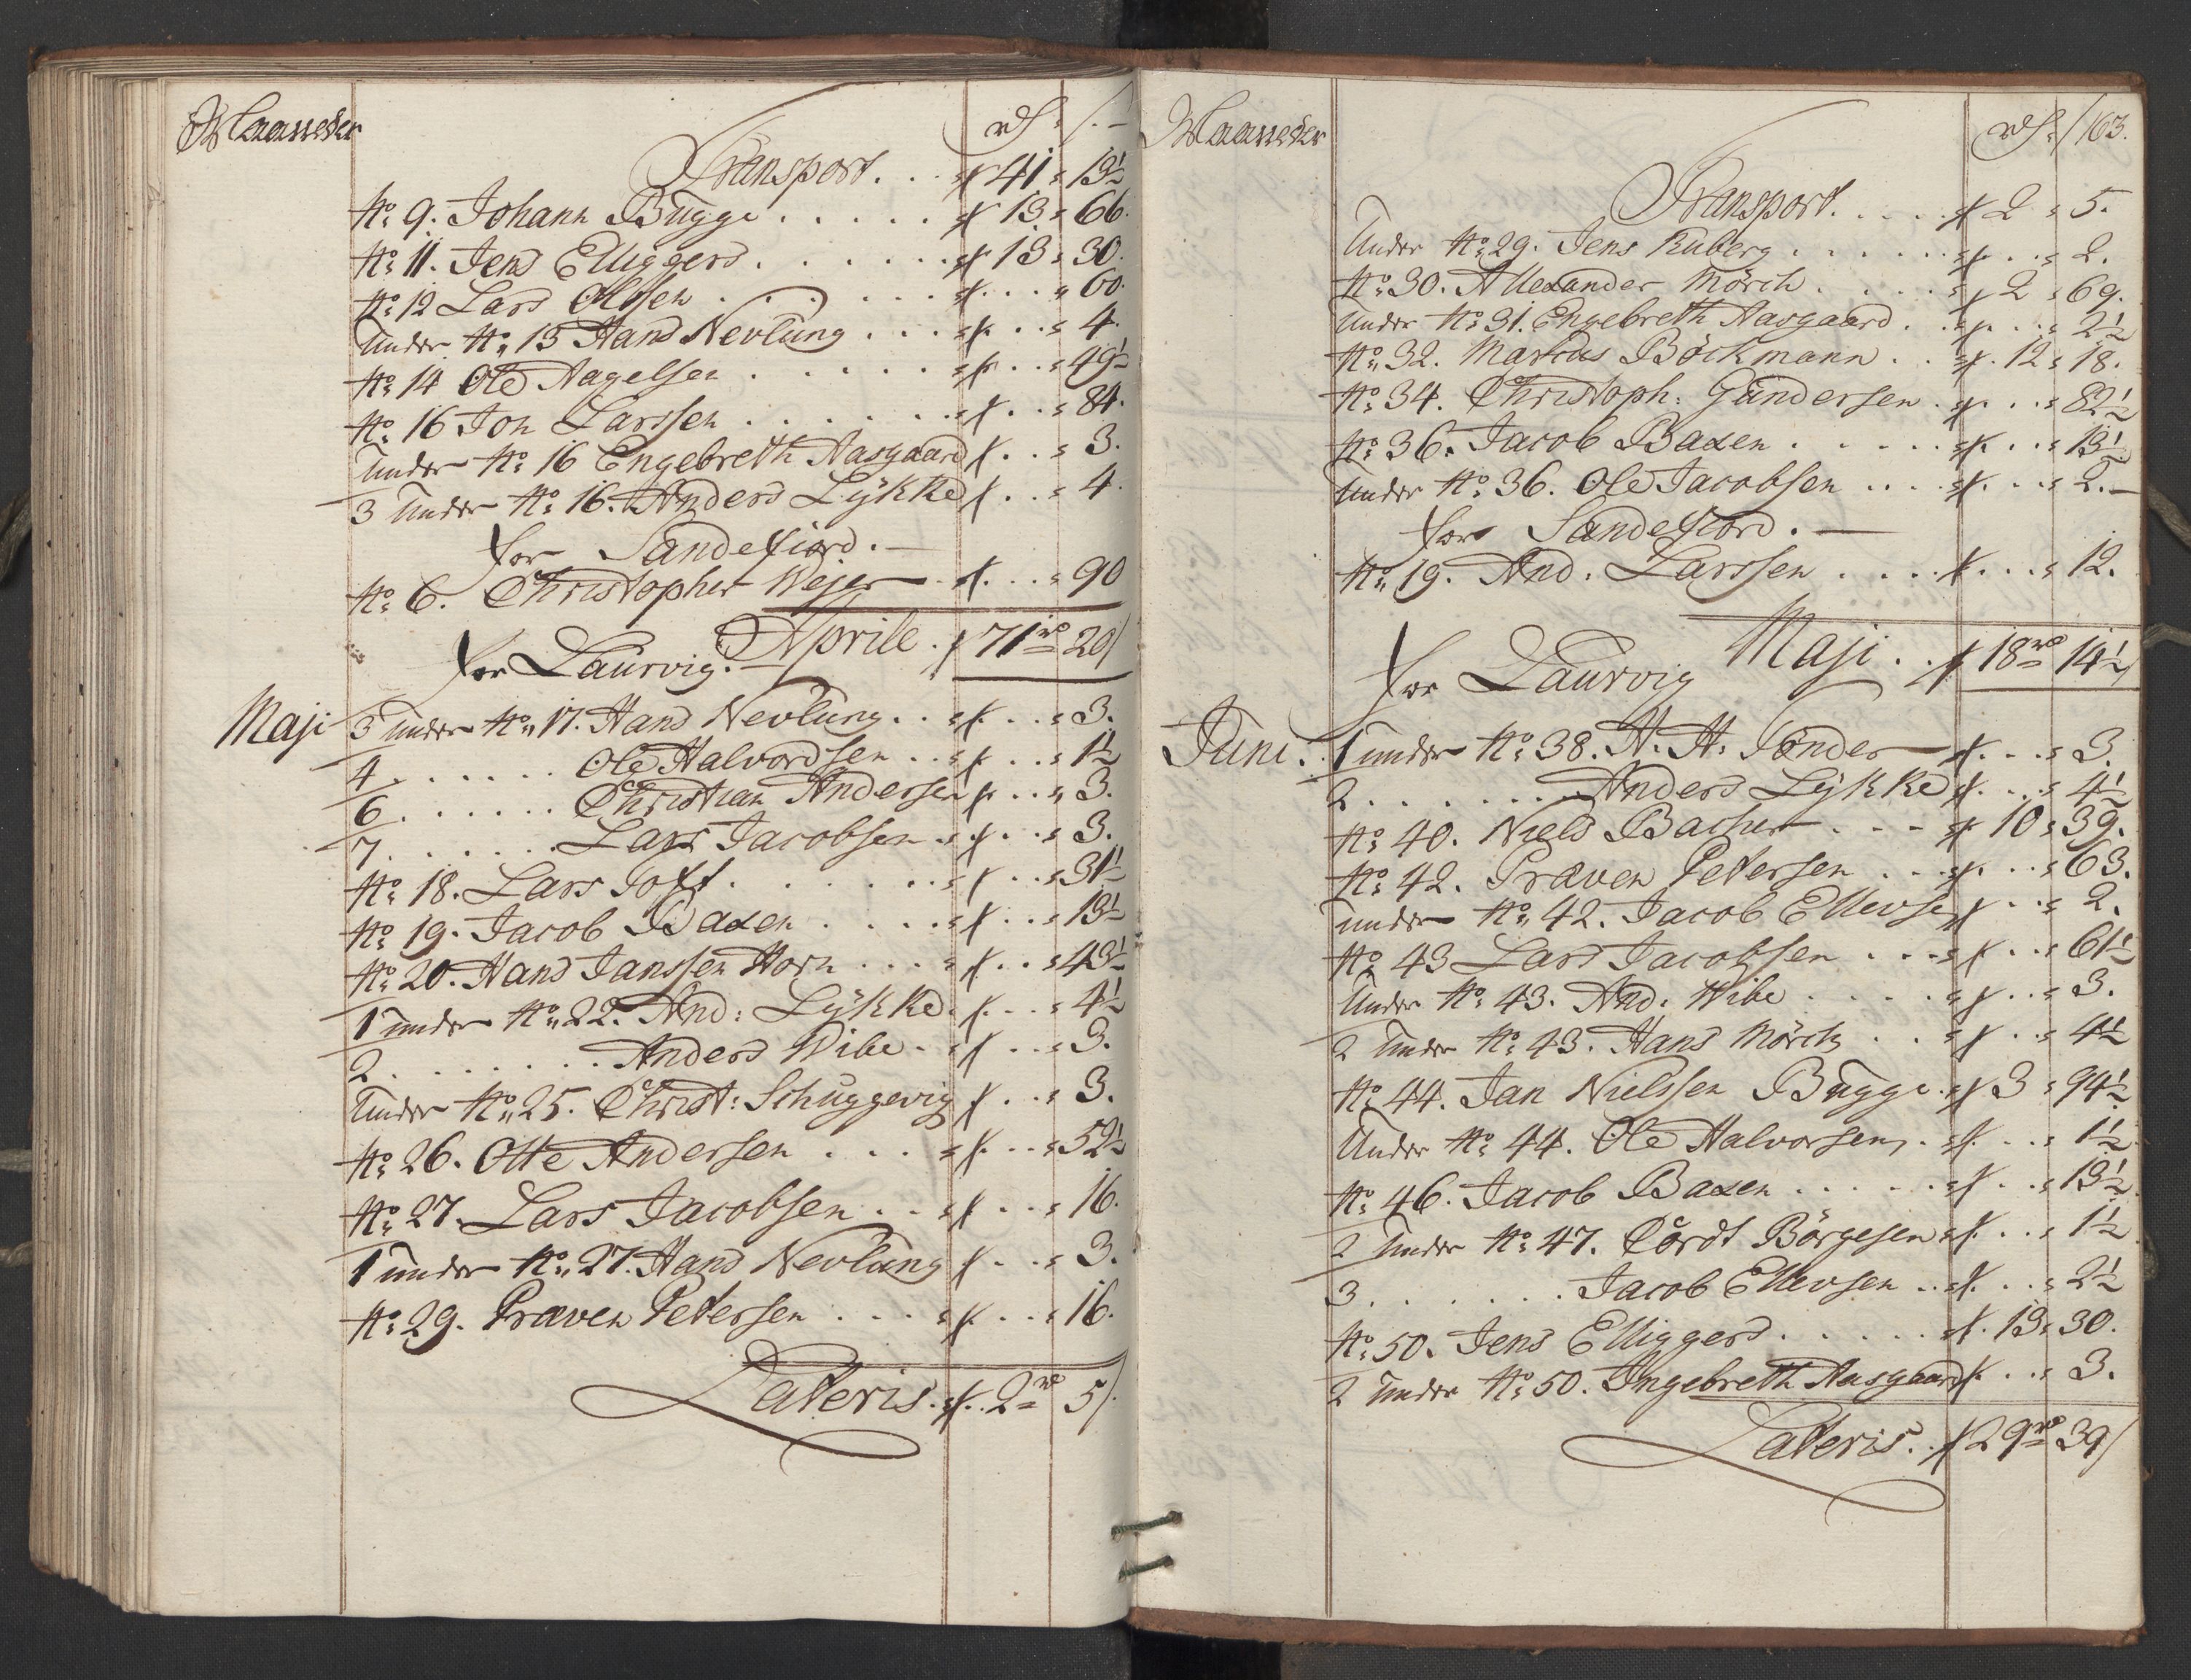 Maaneder
rd: s. –
Transport. . . # 41 = 19½
No: 9. Johann Bugge . . . . . # 13 = 66.
No: 11. Jens Elliggers . . . . . # 13 = 30.
No: 12 Lars Olssen . . . . . # . . . = 60.
Under No: 13 Hans Nevlung . . . # . . = 4.
No: 14 Ole Nagelsen . . . . . # . . = 49½
No: 16 Jon Larssen . . . . . # . . = 84.
Under No: 16 Engebreth Aasgaard # . . = 3.
3 Under No: 16. Anders Lÿkke # . . = 4.
for Sandefiord. –
No: 6. Christopher Wejer – # . . = 90
Aprile. # 71 rd 20 s
for Laurvig. –
Maji
3 under No: 17. Hans Nevlung. . # . . = 3.
4 . . . . . . Ole Halvordsen . . # . . = 1½
6 . . . . . . Christian Andersen # . . = 3.
7 . . . . . . Lars Jacobsen . # . . = 3.
No: 18. Lars Toft . . . . . # . . = 31½
No: 19. Jacob Baxen . . . . # . . = 13½
No: 20. Hans Janssen Horn . . . # . . = 43½
1 under No: 22. And: Lÿkke. # . . . = 4½
2 . . . . . . . Anders Wibe . # . . = 3.
Under No: 25. Christ: Schuggevig # . . = 3.
No: 26. Otte Andersen . . . # . . = 52½
No: 27. Lars Jacobsen . . # . . = 16.
1 under No: 27. Hans Nevlung # . . = 3.
No: 29. Præven Petersen . . . # . . = 16.
Lateris. # . 2 rd 5 s.
Maaneder
rd: s 163.
Transport. . . . # 2 = 5.
Under No: 29. Jens Ruberg . . . . . # . . = 2.
No: 30. Allexander Mörch . . . . # 2 = 69.
Under No: 31. Engebreth Aasgaard . # . . = 2½
No: 32. Marcus Böckmann . . # . 12 = 18.
No: 34. Christoph: Gundersen . # . . = 82½
No: 36. Jacob Baxen . . . . . # . . = 13½
Under No: 36. Ole Jacobsen . . . # . . = 2. –
for Sandefiord. –
No: 19. And: Larssen . . . . # . . . = 12.
Maji . . # 18 rd 14½
for Laurvig
Juni.
1 under No: 38. H. H. Tönder – # . . = 3.
2 . . . . . . . Anders Lÿkke # . . = 4½
No: 40. Niels Bacher – . . – # 10 = 39.
No: 42. Præven Petersen . . . # . . = 63.
under No: 42. Jacob Ellevse # . . = 2.
No: 43 Lars Jacobsen . . . # . . = 61½
Under No: 43. And: Wibe . . . . # . . = 3.
2 Under No: 43. Hans Mörch . . # . . = 4½
No: 44. Jan Nielssen Bugge . # 3 = 94½
Under No: 44. Ole Halvorsen . # . . = 1½
No: 46. Jacob Baxen . . . . . # . . = 13½
2 Under No: 47. Cordt Börgesen # . . = 1½
3 . . . . . . Jacob Ellevsen . . # . . = 2½
No: 50. Jens Elliggers . . . . . # . 13 = 30.
2 Under No: 50. Ingebreth Aasgaard # . . = 3.
Lateris. . # 29 rd 39 s